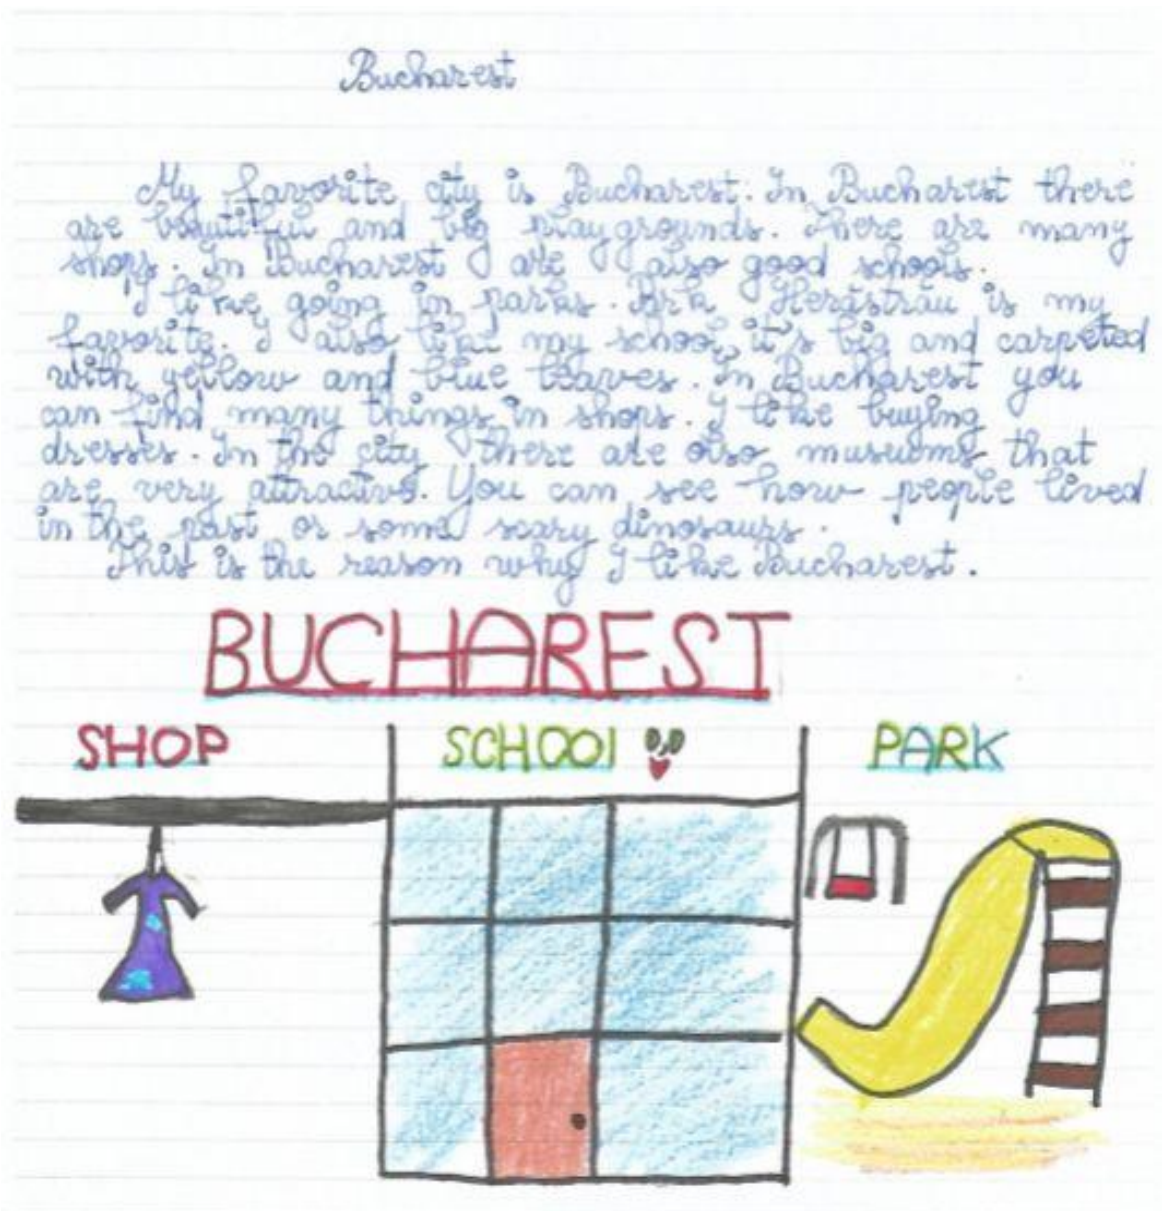 Bucharest
My favorite city is Bucharest. In Bucharest there
are beautiful and big playgrounds. There are many
shops. In Bucharest are also good schools.
I like going in parks. Park Herăstrău is my
favorite. I also like my school, it's big and carpeted
with yellow and blue leaves. In Bucharest you
can find many things in shops. I like buying
dresses. In the city there are also museums that
are very attractive. You can see how people lived
in the past or some scary dinosaurs.
This is the reason why I like Bucharest.
BUCHAREST
SHOP SCHOOl PARK